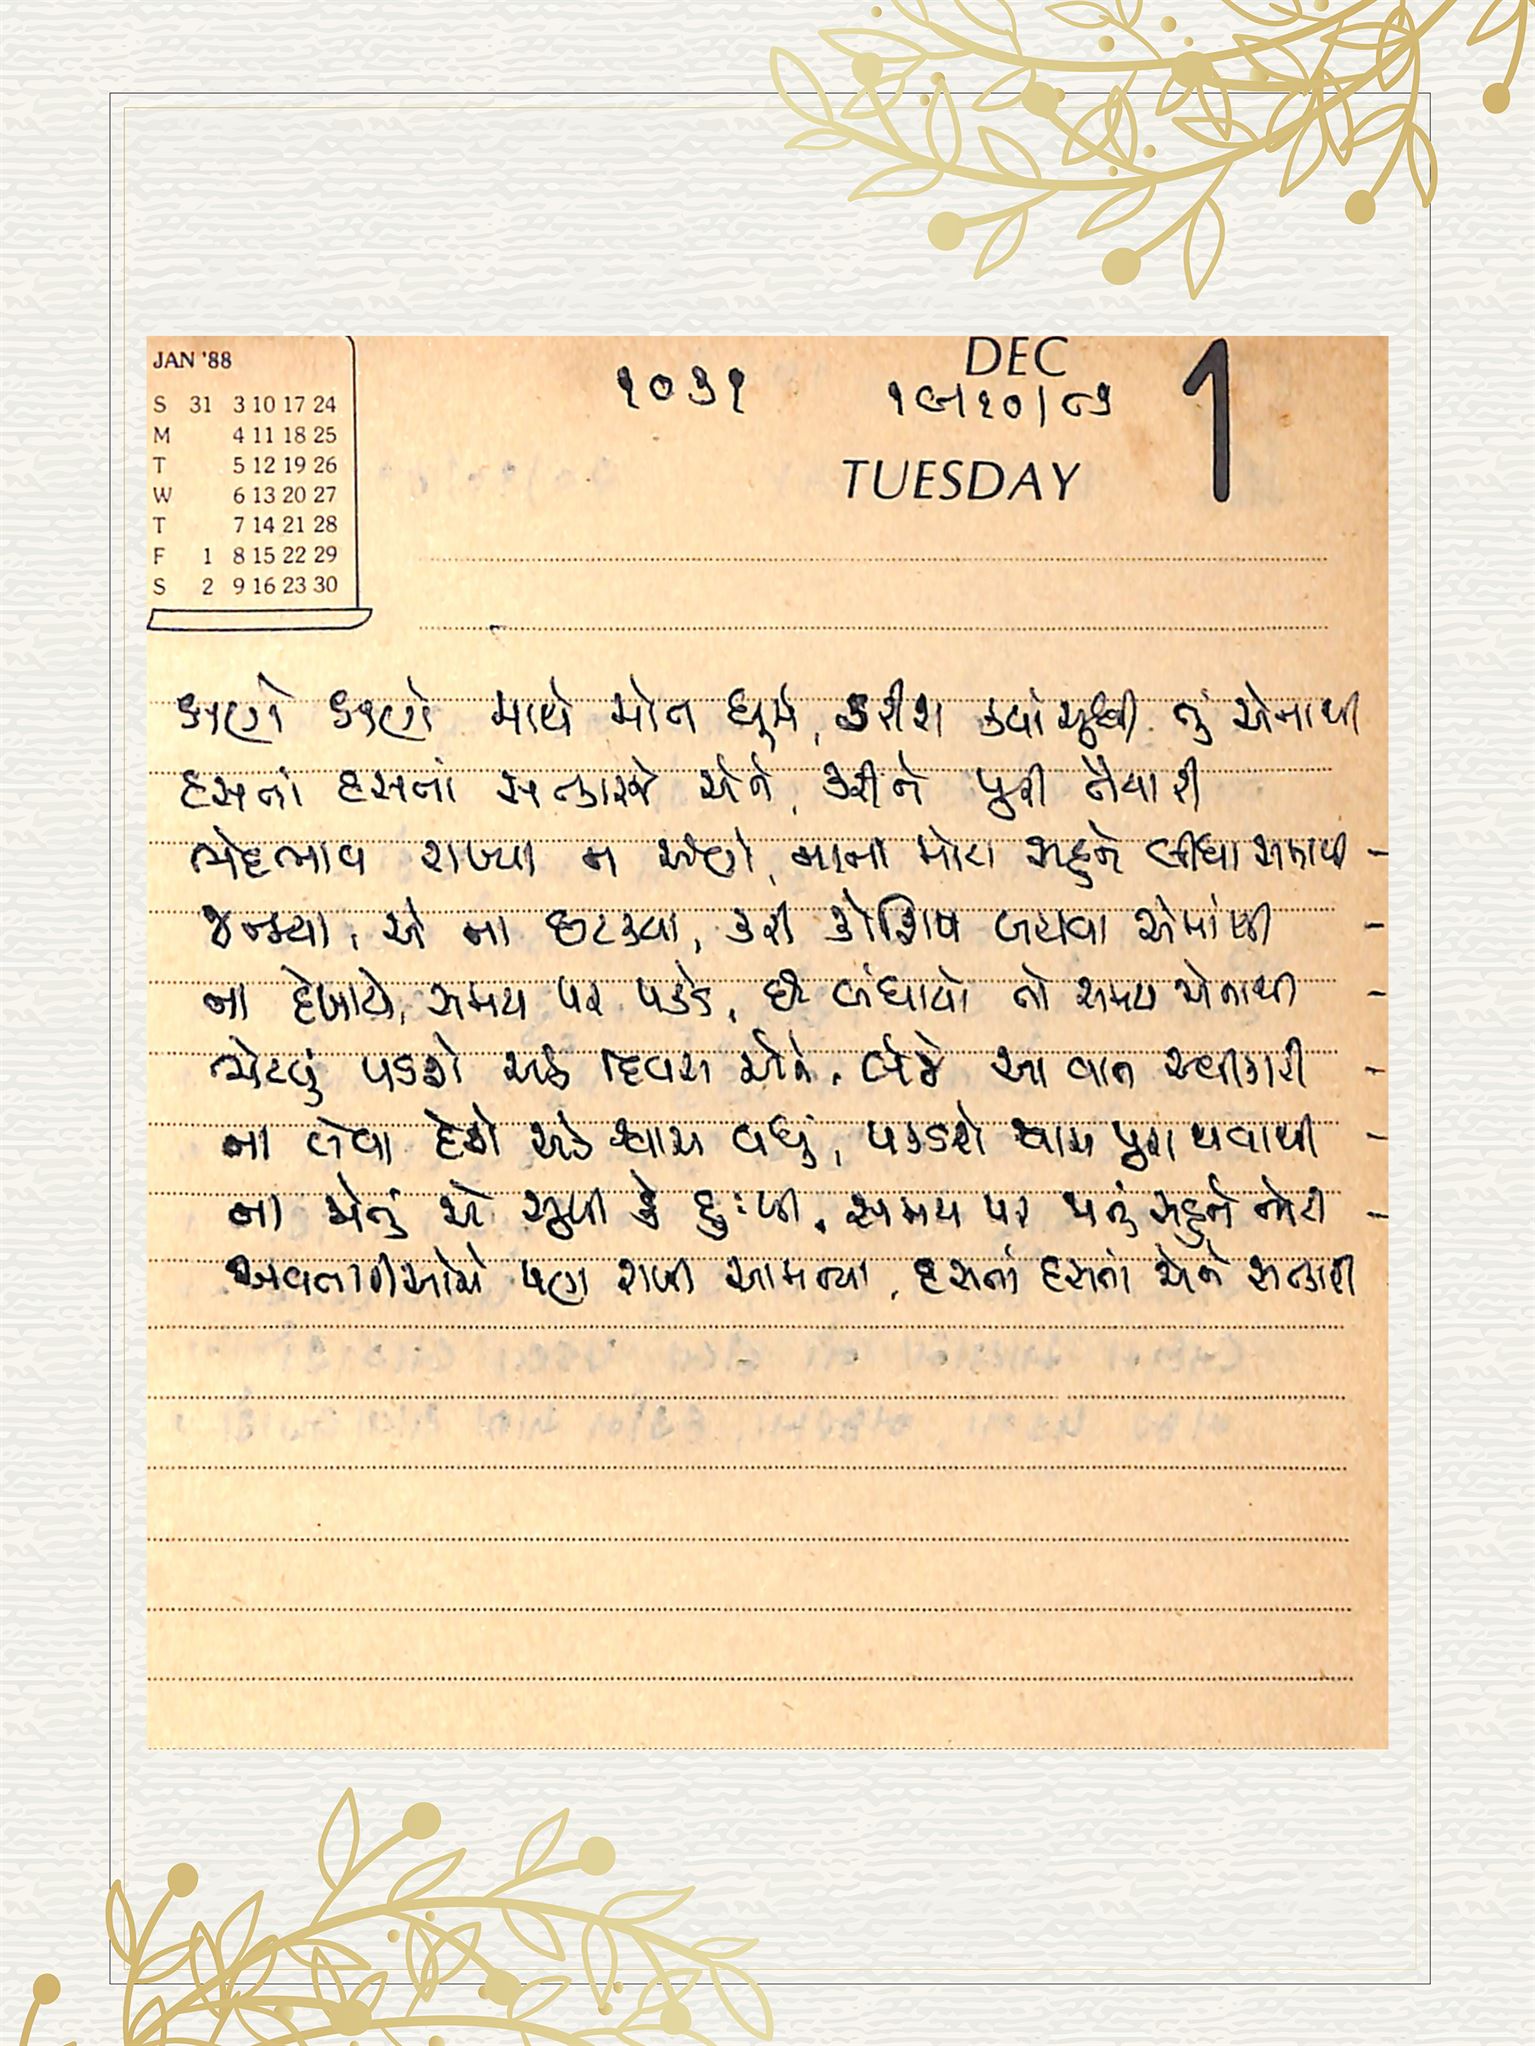 JAN '88
S 31 3 10 17 24
M 4 11 18 25
T 5 12 19 26
W 6 13 20 27
T 7 14 21 28
F 1 8 15 22 29
S 2 9 16 23 30
૧૦૩૧
DEC
1
TUESDAY
ક્ષણે ક્ષણે માથે મોત ઘૂમે, ડરીશ ક્યાં સુધી તું એનાથી
હસતાં હસતાં સત્કારજે એને, કરીને પુરી તૈયારી
ભેદભાવ રાખ્યા ન એણે, નાના મોટા સહુને લીધા સમાવી -
જન્મ્યા, એ ના છટકયા, કરી કોશિષ બચવા એમાંથી -
ના દેખાયે, સમય પર પકડે, છે બંધાયો તો સમય એનાથી -
ભેટવું પડશે એક દિવસ એને, લેજે આ વાત સ્વીકારી -
ના લેવા દેશે એક શ્વાસ વધું, પકડશે શ્વાસ પુરા થવાથી -
ના એનું એ સુખી કે દુઃખી, સમય પર થતું સહુને ભેટી -
અવતારીઓએ પણ રાખી આમન્યા, હસતાં હસતાં એને સત્કારી